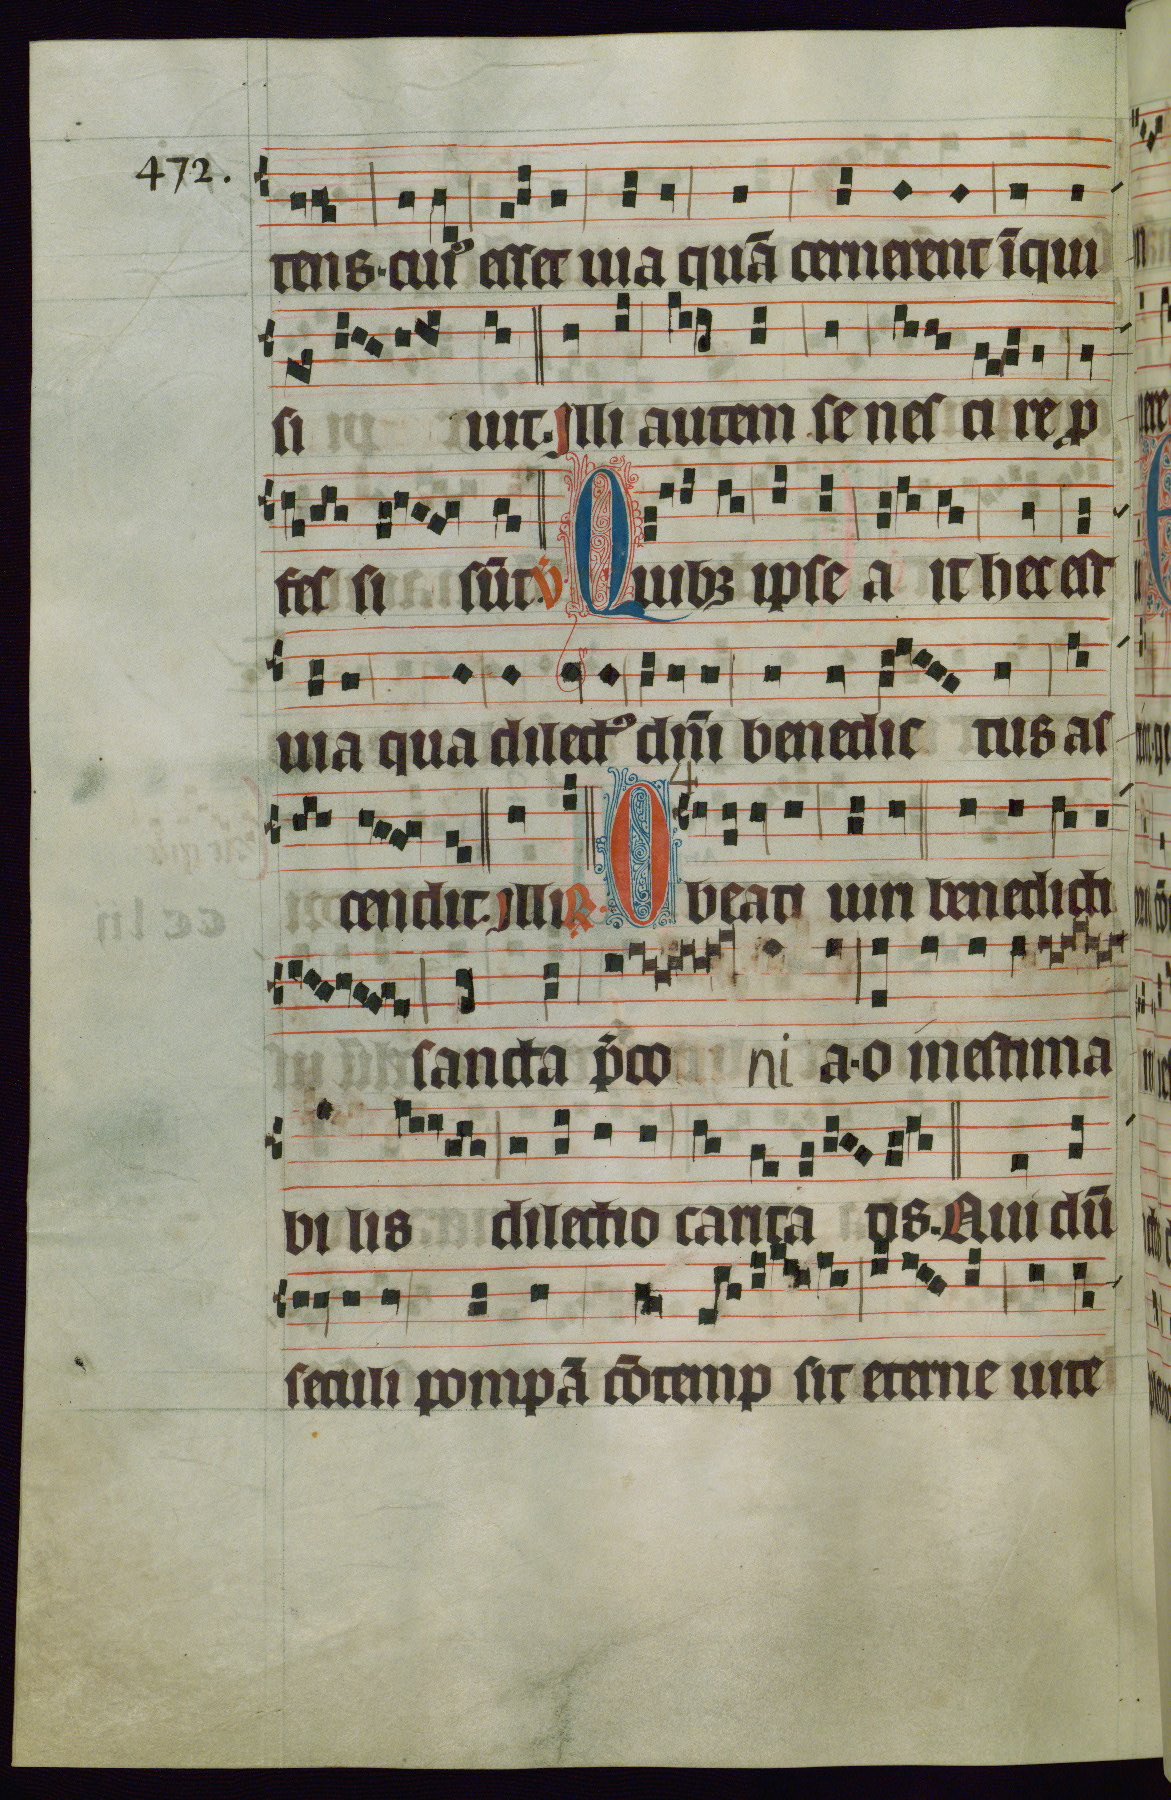 472.
tens·cui᷒ esset uia quā cernerent īqui
si uit. Illi autem se nes ci re ꝓ
fes si sūt. V̄ Quibꝫ ipse a it hec est
uia qua dilect᷒ dn̄i benedic tus as
4
cendit. Illi R. O beati uiri benedicti
sancta p̄co ni a·o inestima
bi lis dilectio carita tis. Qui dū
seculi pompā cōtemp sit eterne uite